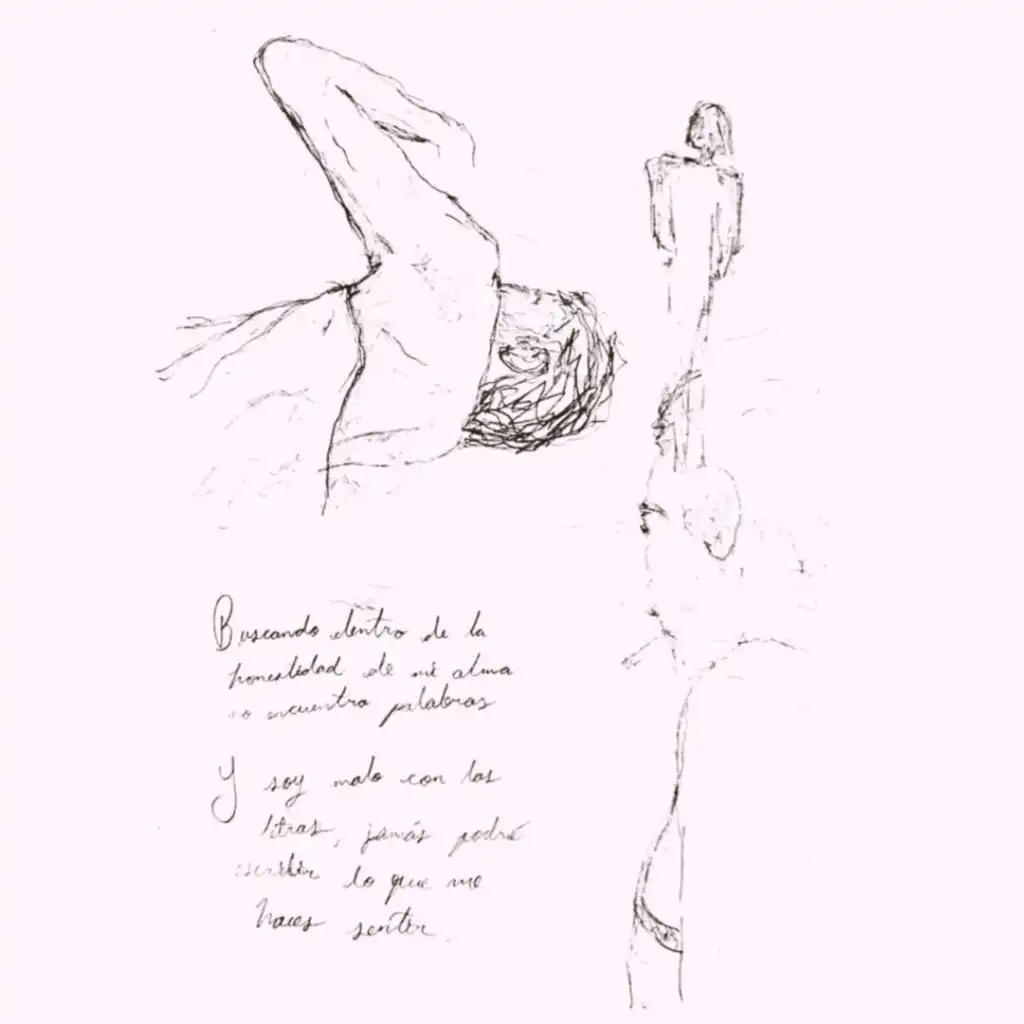 Buscando dentro de la
honestidad de mi alma
no encuentro palabras
Y soy malo con las
letras, jamás podré
escribir lo que me
haces sentir.